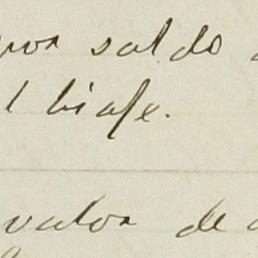 por saldo
l viaje.
valor de